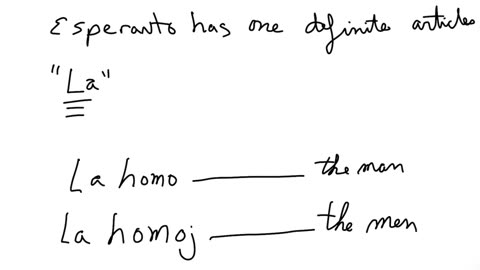 Esperanto has one definite articles
"La"
La homo — the man
La homoj — the men